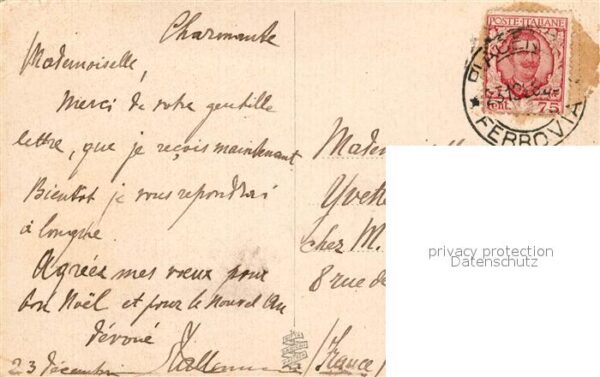 Charmante
Mademoiselle,
Merci de votre gentille
lettre, que je reçois maintenant
Bientôt je vous repondrai
à longue
Agréez mes vœux pour
bon Noël et pour le Nouvel An
dévoué
23 décembre
POSTE ITALIANE
Cent. 75
FERROVIA
Mad
Yvette
chez M.
8 rue de
(France)
privacy protection
Datenschutz